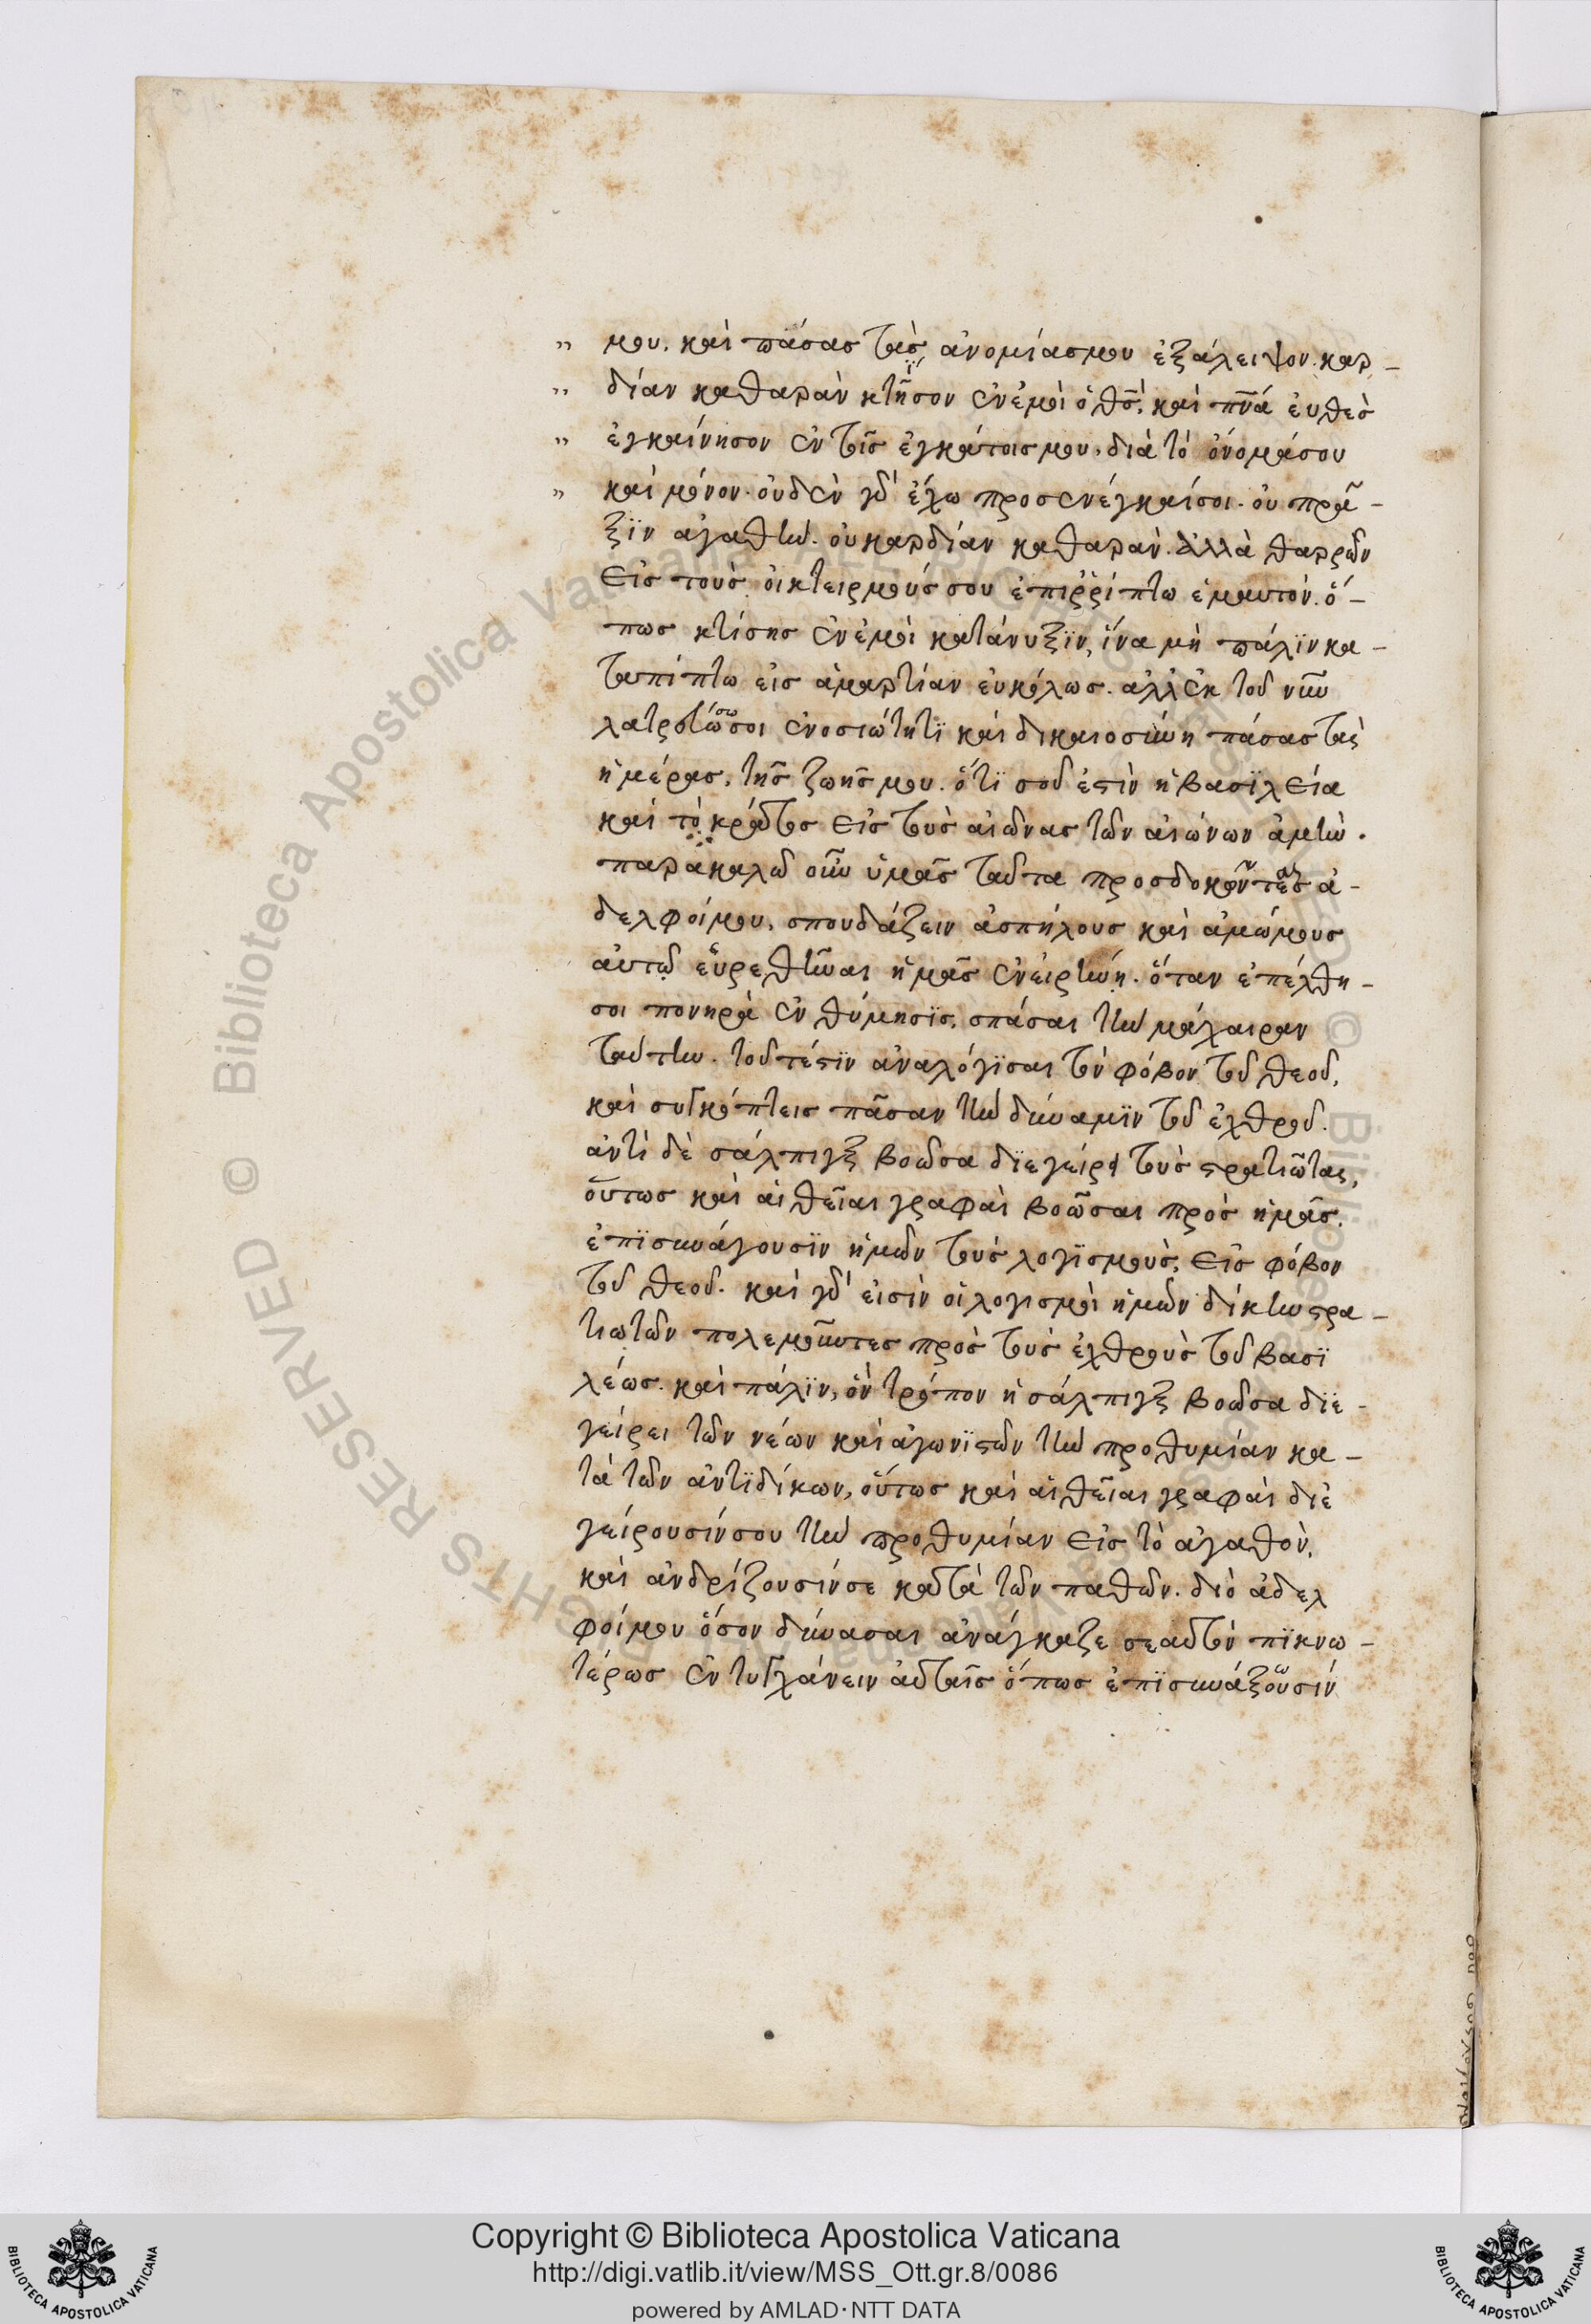 μου. καὶ πάσας τὰς ἀνομίας μου ἐξάλειψον. καρ-
δίαν καθαρὰν κτῆσον ἐν ἐμοὶ ὁ θς̅, καὶ πν̅α εὐθὲς
ἐγκαίνησον ἐν τοῖς ἐγκάτοις μου. διὰ τὸ ὄνομά σου
καὶ μόνον. οὐδὲν γὰρ ἔχω προσενέγκαί σοι. οὐ πρᾶ-
ξϊν ἀγαθὴν. οὐ καρδίαν καθαρὰν. ἀλλὰ θαρρῶν
εἰς τοὺς οἰκτειρμούς σου ἐπιῤῥίπτω ἐμαυτόν. ὅ-
πως κτίσης ἐν ἐμοὶ κατάνυξϊν, ἵνα μὴ πάλϊν κα-
ταπίπτω εἰς ἁμαρτίαν εὐκόλως. ἀλλ' ἐκ τοῦ νῦν
λατρεύσω σοι ἐν ὁσιώτητϊ καὶ δικαιοσύνη πάσας τὰς
ἡμέρας, τῆς ζωῆς μου. ὅτϊ σοῦ ἐστὶν ἡ βασϊλεία
καὶ τὸ κράτος εἰς τοὺς αἰῶνας τῶν αἰώνων ἀμὴν.
παρακαλῶ οὖν ὑμᾶς ταῦτα προσδοκοῦντες ἀ-
δελφοί μου, σπουδάζειν ἀσπήλους καὶ ἀμώμους
αὐτῷ εὑρεθῆναι ἡμᾶς ἐν εἰρήνη. ὅταν ἐπέλθη-
σοι πονηρὰ ἐνθύμησϊς, σπάσαι τὴν μάχαιραν
ταύτην. τοῦτέστϊν ἀναλόγϊσαι τὸν φόβον τοῦ θεοῦ,
καὶ συγκόπτεις πᾶσαν τὴν δύναμϊν τοῦ ἐχθροῦ.
ἀντὶ δὲ σάλπιγξ βοῶσα δϊεγείρει τοὺς στρατιῶτας,
οὕτως καὶ αἱ θεῖαι γραφαὶ βοῶσαι πρὸς ἡμᾶς,
ἐπϊσυνάγουσϊν ἡμῶν τοὺς λογϊσμοὺς, εἰς φόβον
τοῦ θεοῦ. καὶ γὰρ εἰσὶν οἱ λογισμοὶ ἡμῶν δίκην στρα-
τιωτῶν πολεμοῦντες πρὸς τοὺς ἐχθροὺς τοῦ βασϊ
λέως. καὶ πάλϊν, ὃν τρόπον ἡ σάλπιγξ βοῶσα δϊε-
γείρει τῶν νέων καὶ ἀγωνϊστῶν τὴν προθυμίαν κα-
τὰ τῶν ἀντϊδίκων, οὕτως καὶ αἱ θεῖαι γραφαὶ διε
γείρουσίν σου τὴν προθυμίαν εἰς τὸ ἀγαθὸν,
καὶ ἀνδρίζουσίν σε κατὰ τῶν παθῶν. διὸ ἀδελ
φοί μου ὅσον δύνασαι ἀνάγκαζε σεαυτὸν πϊκνω-
τέρως ἐντυγχάνειν αὐταῖς ὅπως ἐπϊσυνάξουσίν
Copyright © Biblioteca Apostolica Vaticana
http://digi.vatlib.it/view/MSS_Ott.gr.8/0086
powered by AMLAD·NTT DATA